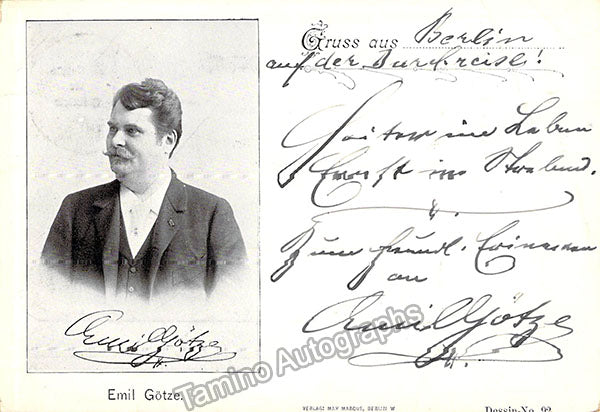 Gruss aus Berlin
auf der Durchreise!
Heiter im Leben
Ernst im Streben.
Zum freundl. Erinnern
an
Emil Götze
Emil Götze
Emil Götze.
Tamino Autographs
VERLAG: MAX MARCUS, BERLIN W
Dessin-No. 92